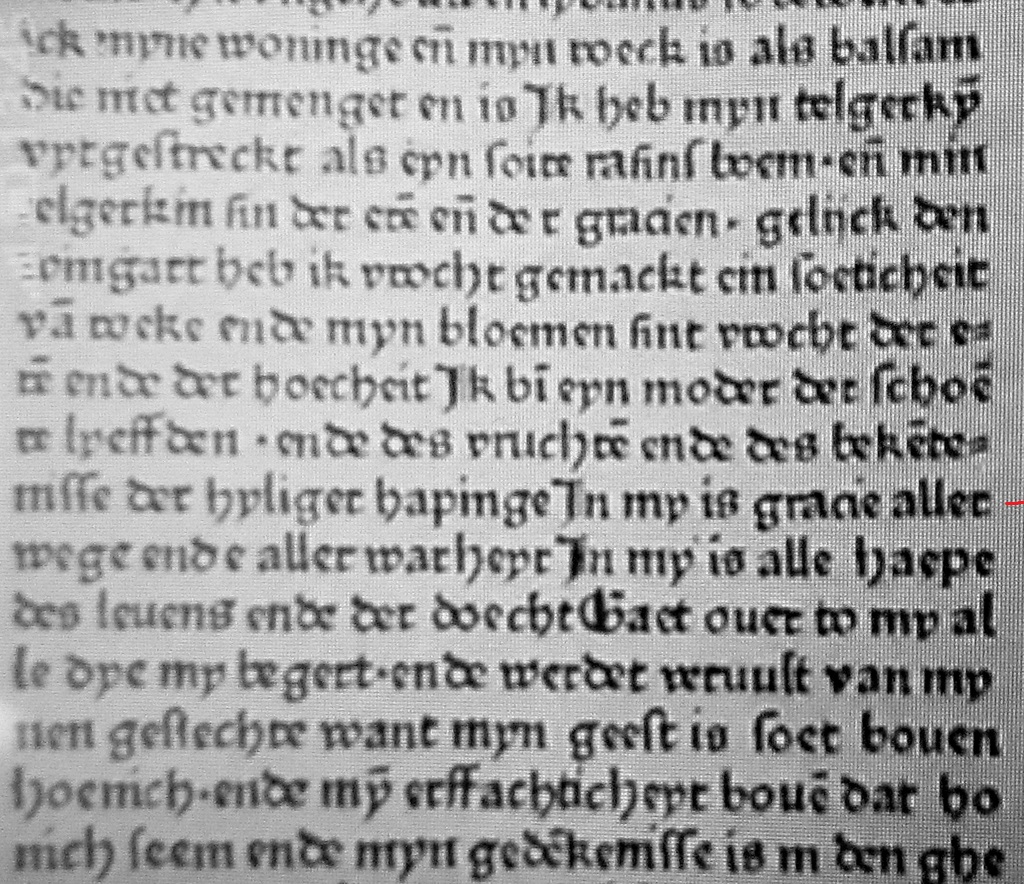 ick myne woninge en̄ myn roeck is als balſam
die niet gemenget en is Ik heb myn telgerkȳ
vytgeſtreckt als eyn ſoite raſinſ boem·en̄ min
elgerkin ſin der erē en̄ de r gracien· gelijck den
omgart heb ik vrocht gemackt ein ſoeticheit
vā roeke ende myn bloemen ſint vrocht der e=
rē ende der hoecheit Ik bī eyn moder der ſchoē
re lyeffden ·ende des vruchtē ende des bekēte=
niſſe der hyliger hapinge In my is gracie aller
wege ende aller warheyt In my is alle haepe
des leuens ende der doecht Gaet ouer to my al
le dye my begert·ende werdet vervult van my
nen geſlechte want myn geeſt is ſoet bouen
hoenich·ende mȳ erffachticheyt bouē dat ho
nich ſeem ende myn gedēkeniſſe is in den ghe